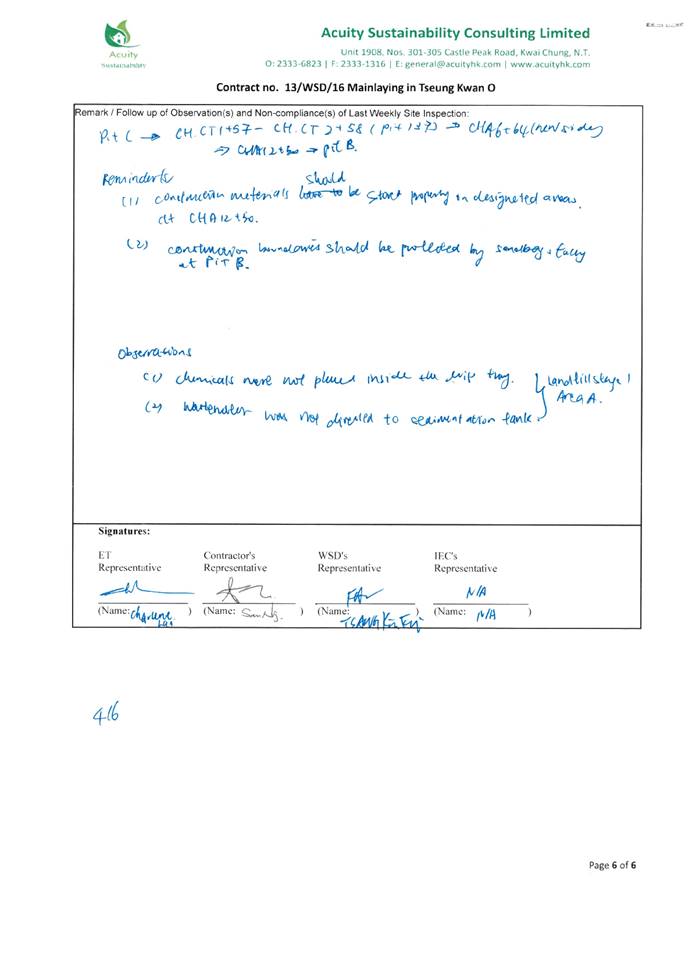 Acuity Sustainability Consulting Limited
Acuity
Sustainability
Unit 1908, Nos. 301-305 Castle Peak Road, Kwai Chung, N.T.
O: 2333-6823 | F: 2333-1316 | E: general@acuityhk.com | www.acuityhk.com
Contract no. 13/WSD/16 Mainlaying in Tseung Kwan O
Remark / Follow up of Observation(s) and Non-compliance(s) of Last Weekly Site Inspection:
Pit C → CH.CT1+57 - CH.CT2+58 (Pit 137) → CHA6+64 (new side)
→ CHA12+50 → pit B.
Reminders
(1) construction materials should be stored properly in designated areas
at CHA12+50.
(2) construction boundaries should be protected by sandbag
at PIT B.
Observations
(1) chemicals were not placed inside the drip tray.
Landfill stage 1
Area A.
(2) wastewater was not directed to sedimentation tank.
Signatures:
ET Representative
Contractor's Representative
WSD's Representative
IEC's Representative
N/A
(Name: Charlene Lai )
(Name: Sam Ng. )
(Name: TSANG )
(Name: N/A )
Page 6 of 6